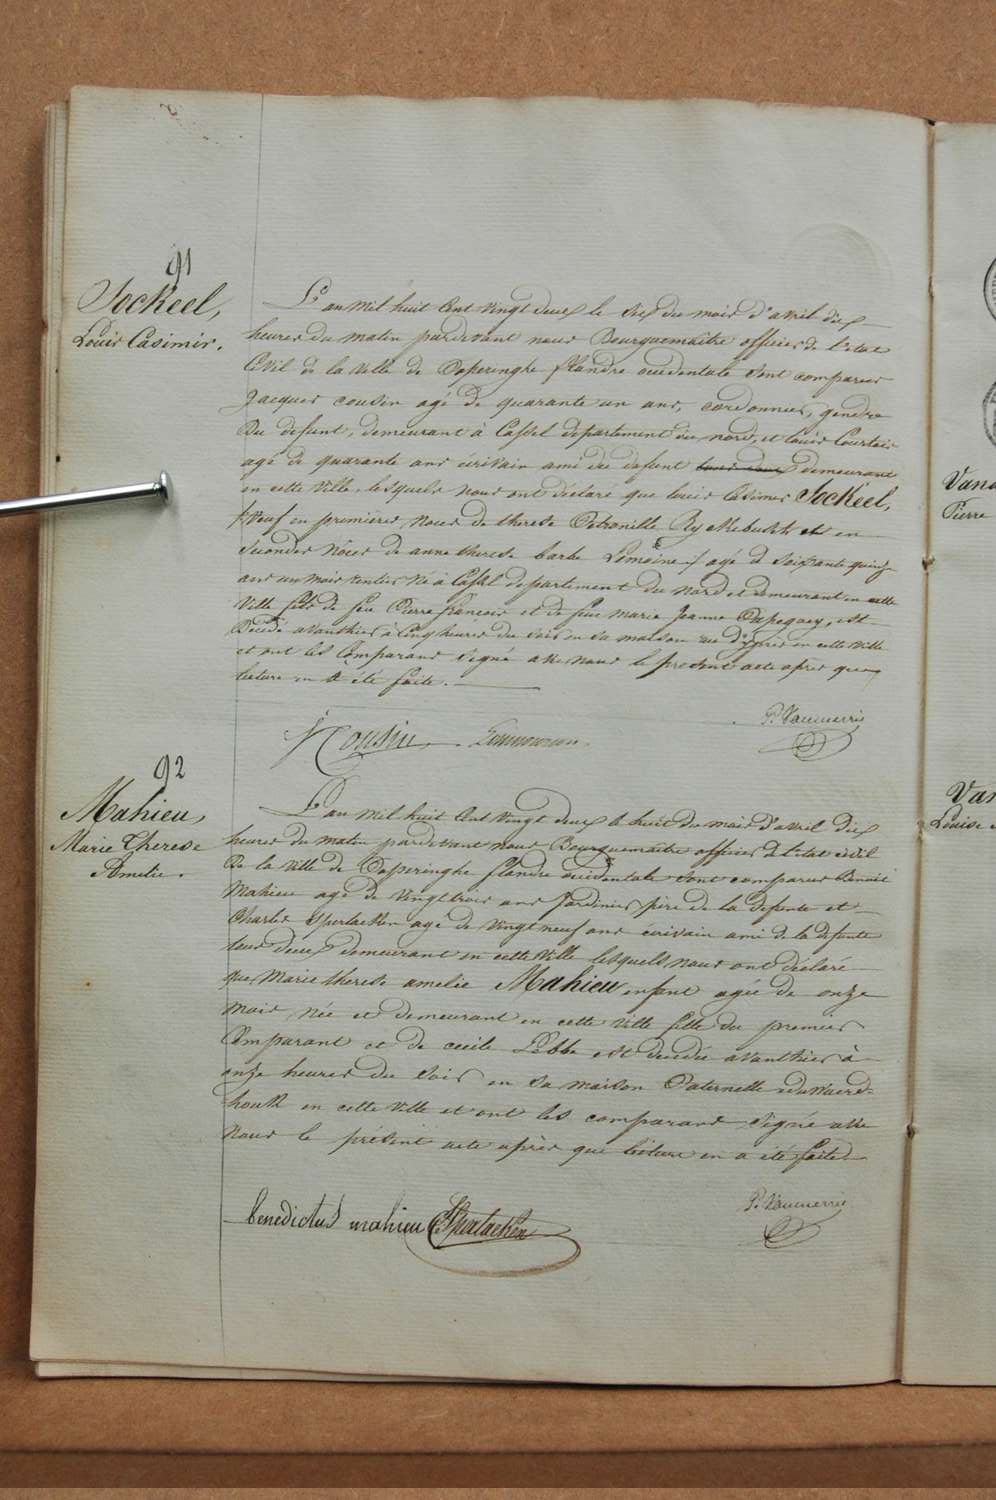 91
Sockeel,
Louis Casimir.
L'an mil huit cent vingt deux le six du mois d'avril dix
heures du matin pardevant nous Bourguemaître officier de l'etat
Civil de la ville de Poperinghe flandre occidentale sont comparus
Jacques cousin agé de quarante un ans, cordonnier, gendre
du defunt, demeurant à Cassel département du nord, et louis
agé de quarante ans écrivain ami du defunt tous deux demeurant
en cette ville, lesquels nous ont déclaré que louis Casimir Sockeel,
Veuf en premières noces de therese Petronille et en
secondes nôces de anne therese barbe Lemoine agé de soixante quinze
ans un mois rentier né à Cassel departement du Nord et demeurant en cette
Ville fils de feu Pierre françois et de feue marie Jeanne, est
Décédé avanthier à cinq heures du soir en sa maison rue d'ypres en cette ville
et ont les Comparans signé avec nous le présent acte après que
lecture en a été faite.
J Cousin P. Vanmerris
92
Mahieu,
Marie Therese
Amelie.
L'an mil huit cent vingt deux le huit du mois d'avril dix
heures du matin pardevant nous Bourguemaître officier de l'etat civil
De la ville de Poperinghe flandre occidentale sont comparus Benoit
Mahieu agé de vingt trois ans Jardinier père de la defunte et
Charles Sperlaeken agé de vingt neuf ans écrivain ami de la defunte
tous deux demeurant en cette ville lesquels nous ont déclaré
que Marie therese amelie Mahieu enfant agée de onze
mois, née et demeurant en cette ville fille du premier
Comparant et de cecile Lebbe est decedée avanthier à
onze heures du soir en sa maison Paternelle
houk en cette ville et ont les comparans signé avec
nous le présent acte après que lecture en a été faite.
benedictus mahieu C Sperlaeken P. Vanmerris
Pierre
Louise